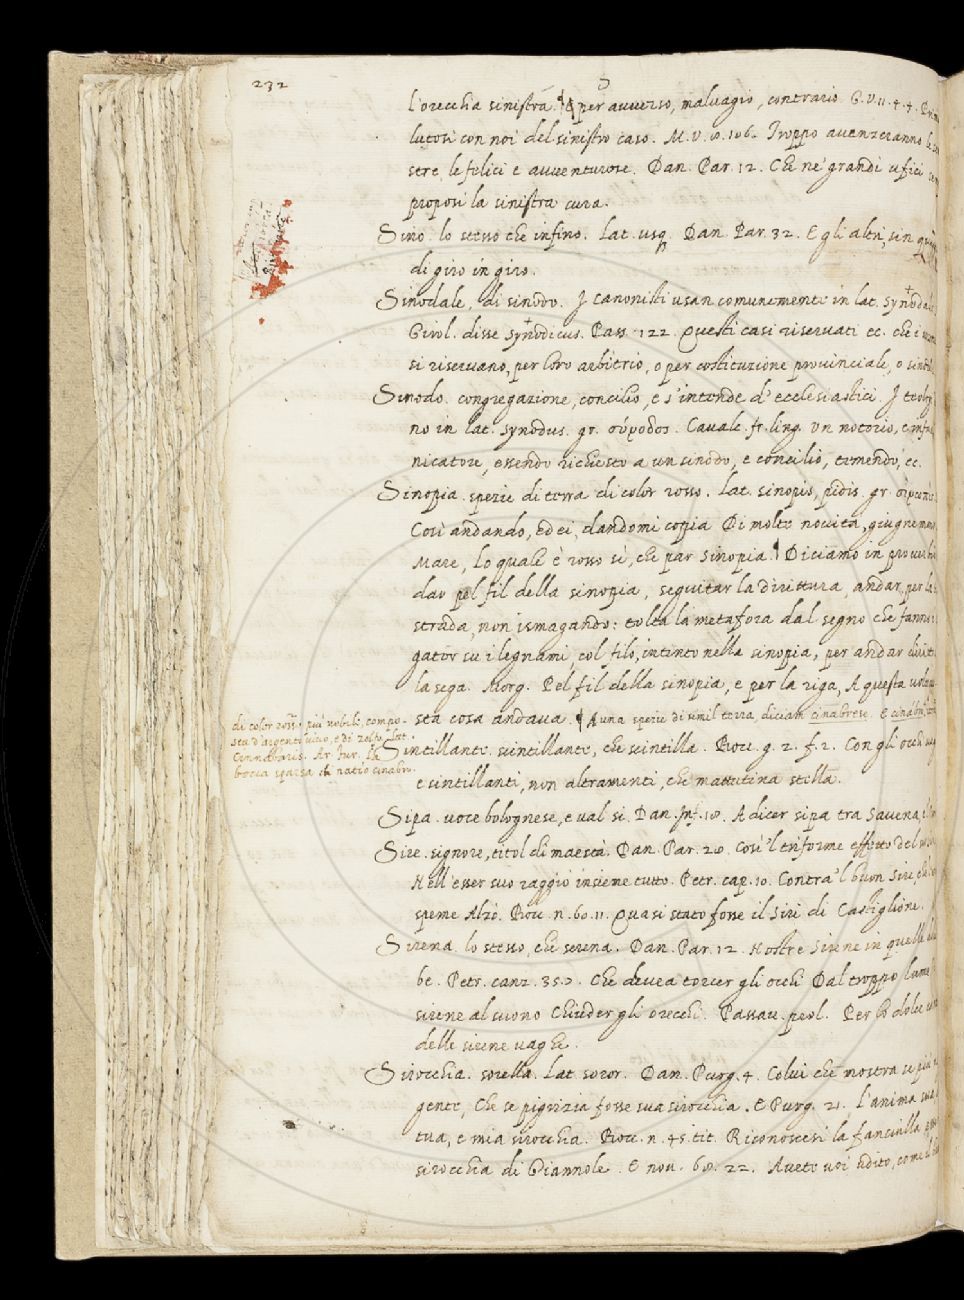 232
l'orecchia sinistra. ¶ per avverso, malvagio, contrario. G.V. 11. 4. 4.
lutosi con noi del sinistro caso. M. V. 8. 106. Troppo avenzeranno
sere le felici e avventurose. Dan. Par. 12. Che ne' grandi ufici
proposi la sinistra cura.
Sino. lo stesso che infino. Lat. usq. Dan. Par. 32. E gli altri sin
di giro in giro.
Sinodale, di sinodo. I canonisti usan comunemente in lat.
Girol. disse synodicus. Pass. 122. Questi casi riservati ec. che i
si riservano, per loro arbitrio, o per costituzione provinciale, o
Sinodo. congregazione, concilio, e s'intende d'ecclesiastici. I
no in lat. synodus. gr. σύνοδος. Cavalc. fr. ling. Un notorio,
nicatore, essendo richiesto a un sinodo, e concilio, temendo, ec.
Sinopia. spezie di terra di color rosso. Lat. sinopis, pidis. gr.
Così andando, ed ei, dandomi copia Di molte novità,
Mare, Lo quale è rosso sì, che par sinopia. ¶ Diciamo in
dar pel fil della sinopia, seguitar la dirittura, andar per la
strada, non ismagando: tolta la metafora dal segno che fanno
gator su i legnami, col filo, intinto nella sinopia, per andar
la sega. Morg. Pel fil della sinopia, e per la riga, A questa
sta cosa andava. ¶ A una spezie di simil terra, diciam cinabrese. E
di color ross. più nobile, compo-
sta d'argento vivo, e di zolfo. Lat.
Cinnabaris. Ar. Fur. La
bocca sparsa di natio cinabro.
Sintillante. scintillante, che scintilla. Bocc. g. 2. f. 2. Con gli occhi
e sintillanti, non altramenti, che mattutina stella.
Sipa. voce bolognese, e val sì. Dan. Inf. 18. A dicer sipa tra Savena,
Sire. signore, titol di maestà. Dan. Par. 28. Così 'l triforme effetto del
Nell'esser suo raggiò insieme tutto. Petr. cap. 10. Contra 'l buon Sire,
speme alzò. Bocc. n. 60. 11. Quasi stato fosse il Siri di Castiglione.
Sirena. lo stesso, che serena. Dan. Par. 12. Nostre Sirene in quelle
be. Petr. canz. 35. 7. Che devea torcer gli occhi Dal troppo lume
sirene al suono Chiuder gli orecchi. Passav. prol. Per lo dolce
delle sirene vaghe.
Sirocchia. sorella. Lat. soror. Dan. Purg. 4. Colui che mostra se più
gente, Che se pigrizia fosse sua sirocchia. E Purg. 21. L'anima sua
tua, e mia sirocchia. Bocc. n. 45. tit. Riconoscesi la fanciulla
sirocchia di Giannole. E nov. 68. 22. Avete voi udito, come